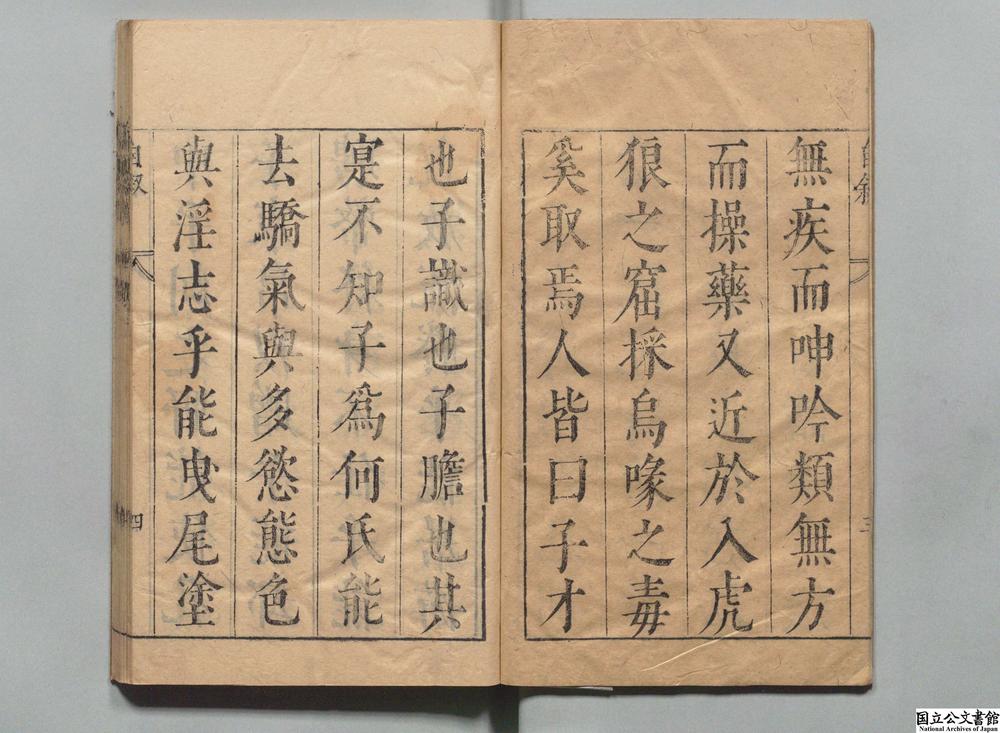 無疾而呻吟類無方
而操藥又近於入虎
狼之窟採烏喙之毒
奚取焉人皆曰子才
也子識也子膽也其
寔不知子爲何氏能
去驕氣與多慾態色
與淫志乎能曳尾塗
三
四
国立公文書館
National Archives of Japan